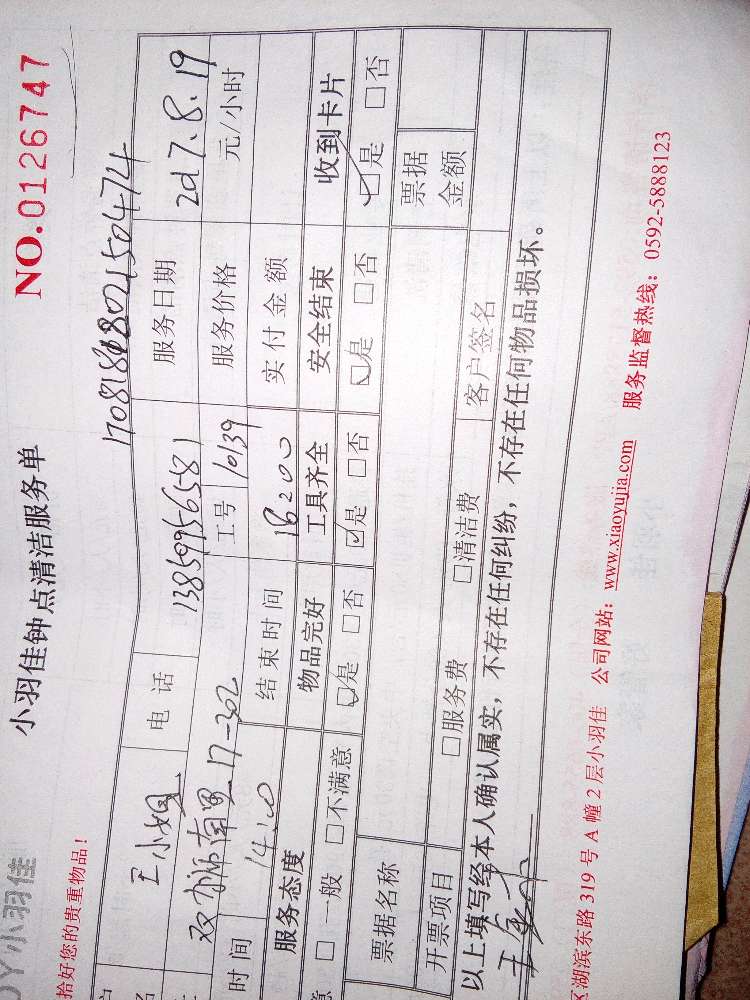 小羽佳
小羽佳钟点清洁服务单 NO.0126747
拾好您的贵重物品!
小姐 电话 13859956581 服务日期 2017.8.19
17-302 工号 10139 服务价格 元/小时
时间 14:00 结束时间 18:00 实付金额
服务态度 物品完好 工具齐全 安全结束 收到卡片
意 □ 一般 □ 不满意 ☑是 □否 ☑是 □否 ☑是 □否 ☑是 □否
票据名称 票据金额
开票项目 □服务费 □清洁费 客户签名
以上填写经本人确认属实,不存在任何纠纷,不存在任何物品损坏。
区湖滨东路 319 号 A 幢 2 层小羽佳 公司网站:www.xiaoyujia.com 服务监督热线:0592-5888123